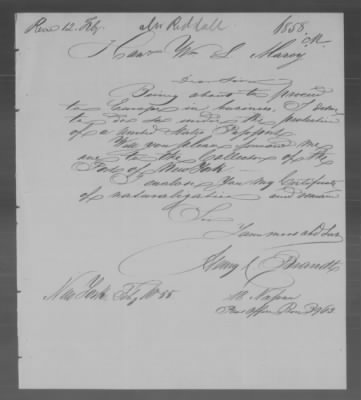 Recd 12. Feby. Mr Riddall 1858.
M.
Hon Wm L. Marcy
Dear Sir
Being about to proceed
to Europe on business, I desire
to do so under the protection
of a United States Passport
Will you please forward me
one to the Collector of the
Port of New York
I enclose you my Certificate
of naturalization and remain
Sir
Your most obt Svt
Henry Brandt
New York Feby
Nassau
Post Office Box 3963